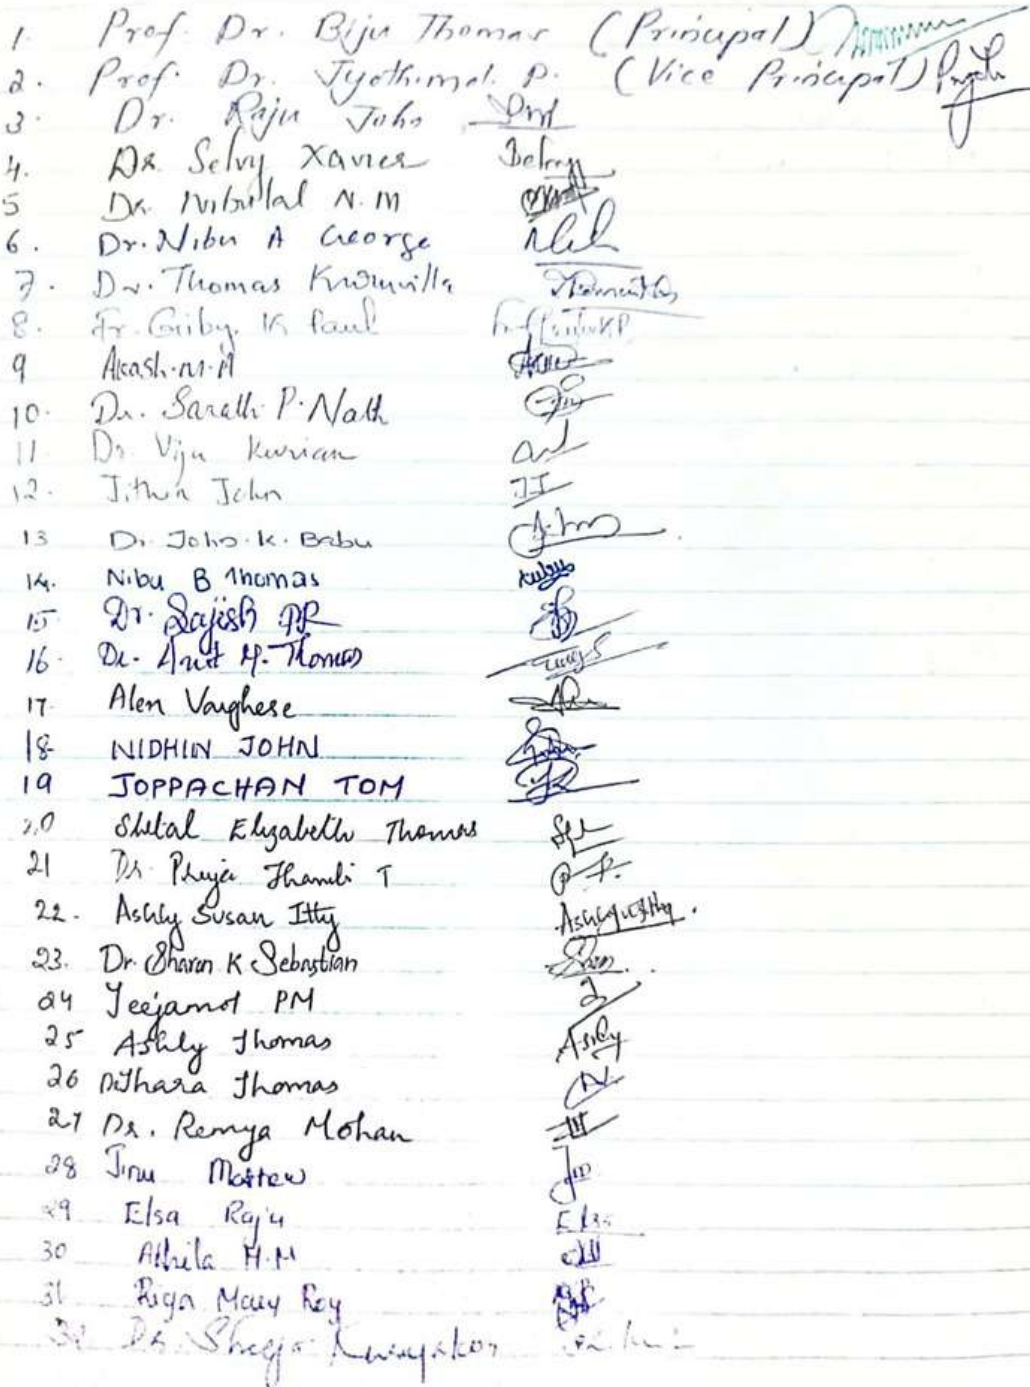 1. Prof. Dr. Biju Thomas (Principal)
2. Prof. Dr. Jyothimol. P. (Vice Principal)
3. Dr. Raju John
4. Dr Selvy Xavier
5 Dr. Nibulal N.M
6. Dr. Nibu A George
7. Dr. Thomas Kuruvilla
8. Fr. Griby. K Paul
9 Akash.M.A
10. Dr. Sarath P. Nath
11 Dr. Viju Kurian
12. Jithin John JJ
13 Dr. John. K. Babu
14. Nibu B Thomas
15 Dr. Sajish PR
16. Dr. M. Thomas
17. Alen Varghese
18 NIDHIN JOHN
19 JOPPACHAN TOM
20 Shetal Elizabeth Thomas
21 Dr. Thambi T
22. Ashly Susan Itty
23. Dr. Sharon K Sebastian
24 Jeejamol PM
25 Ashly Thomas Ashly
26 Thomas
27 Dr. Remya Mohan
28 Jinu Mattew
29 Elsa Raju Elsa
30 Athila M.M
31 Riya Mary Roy
32 Dr. Sheeja